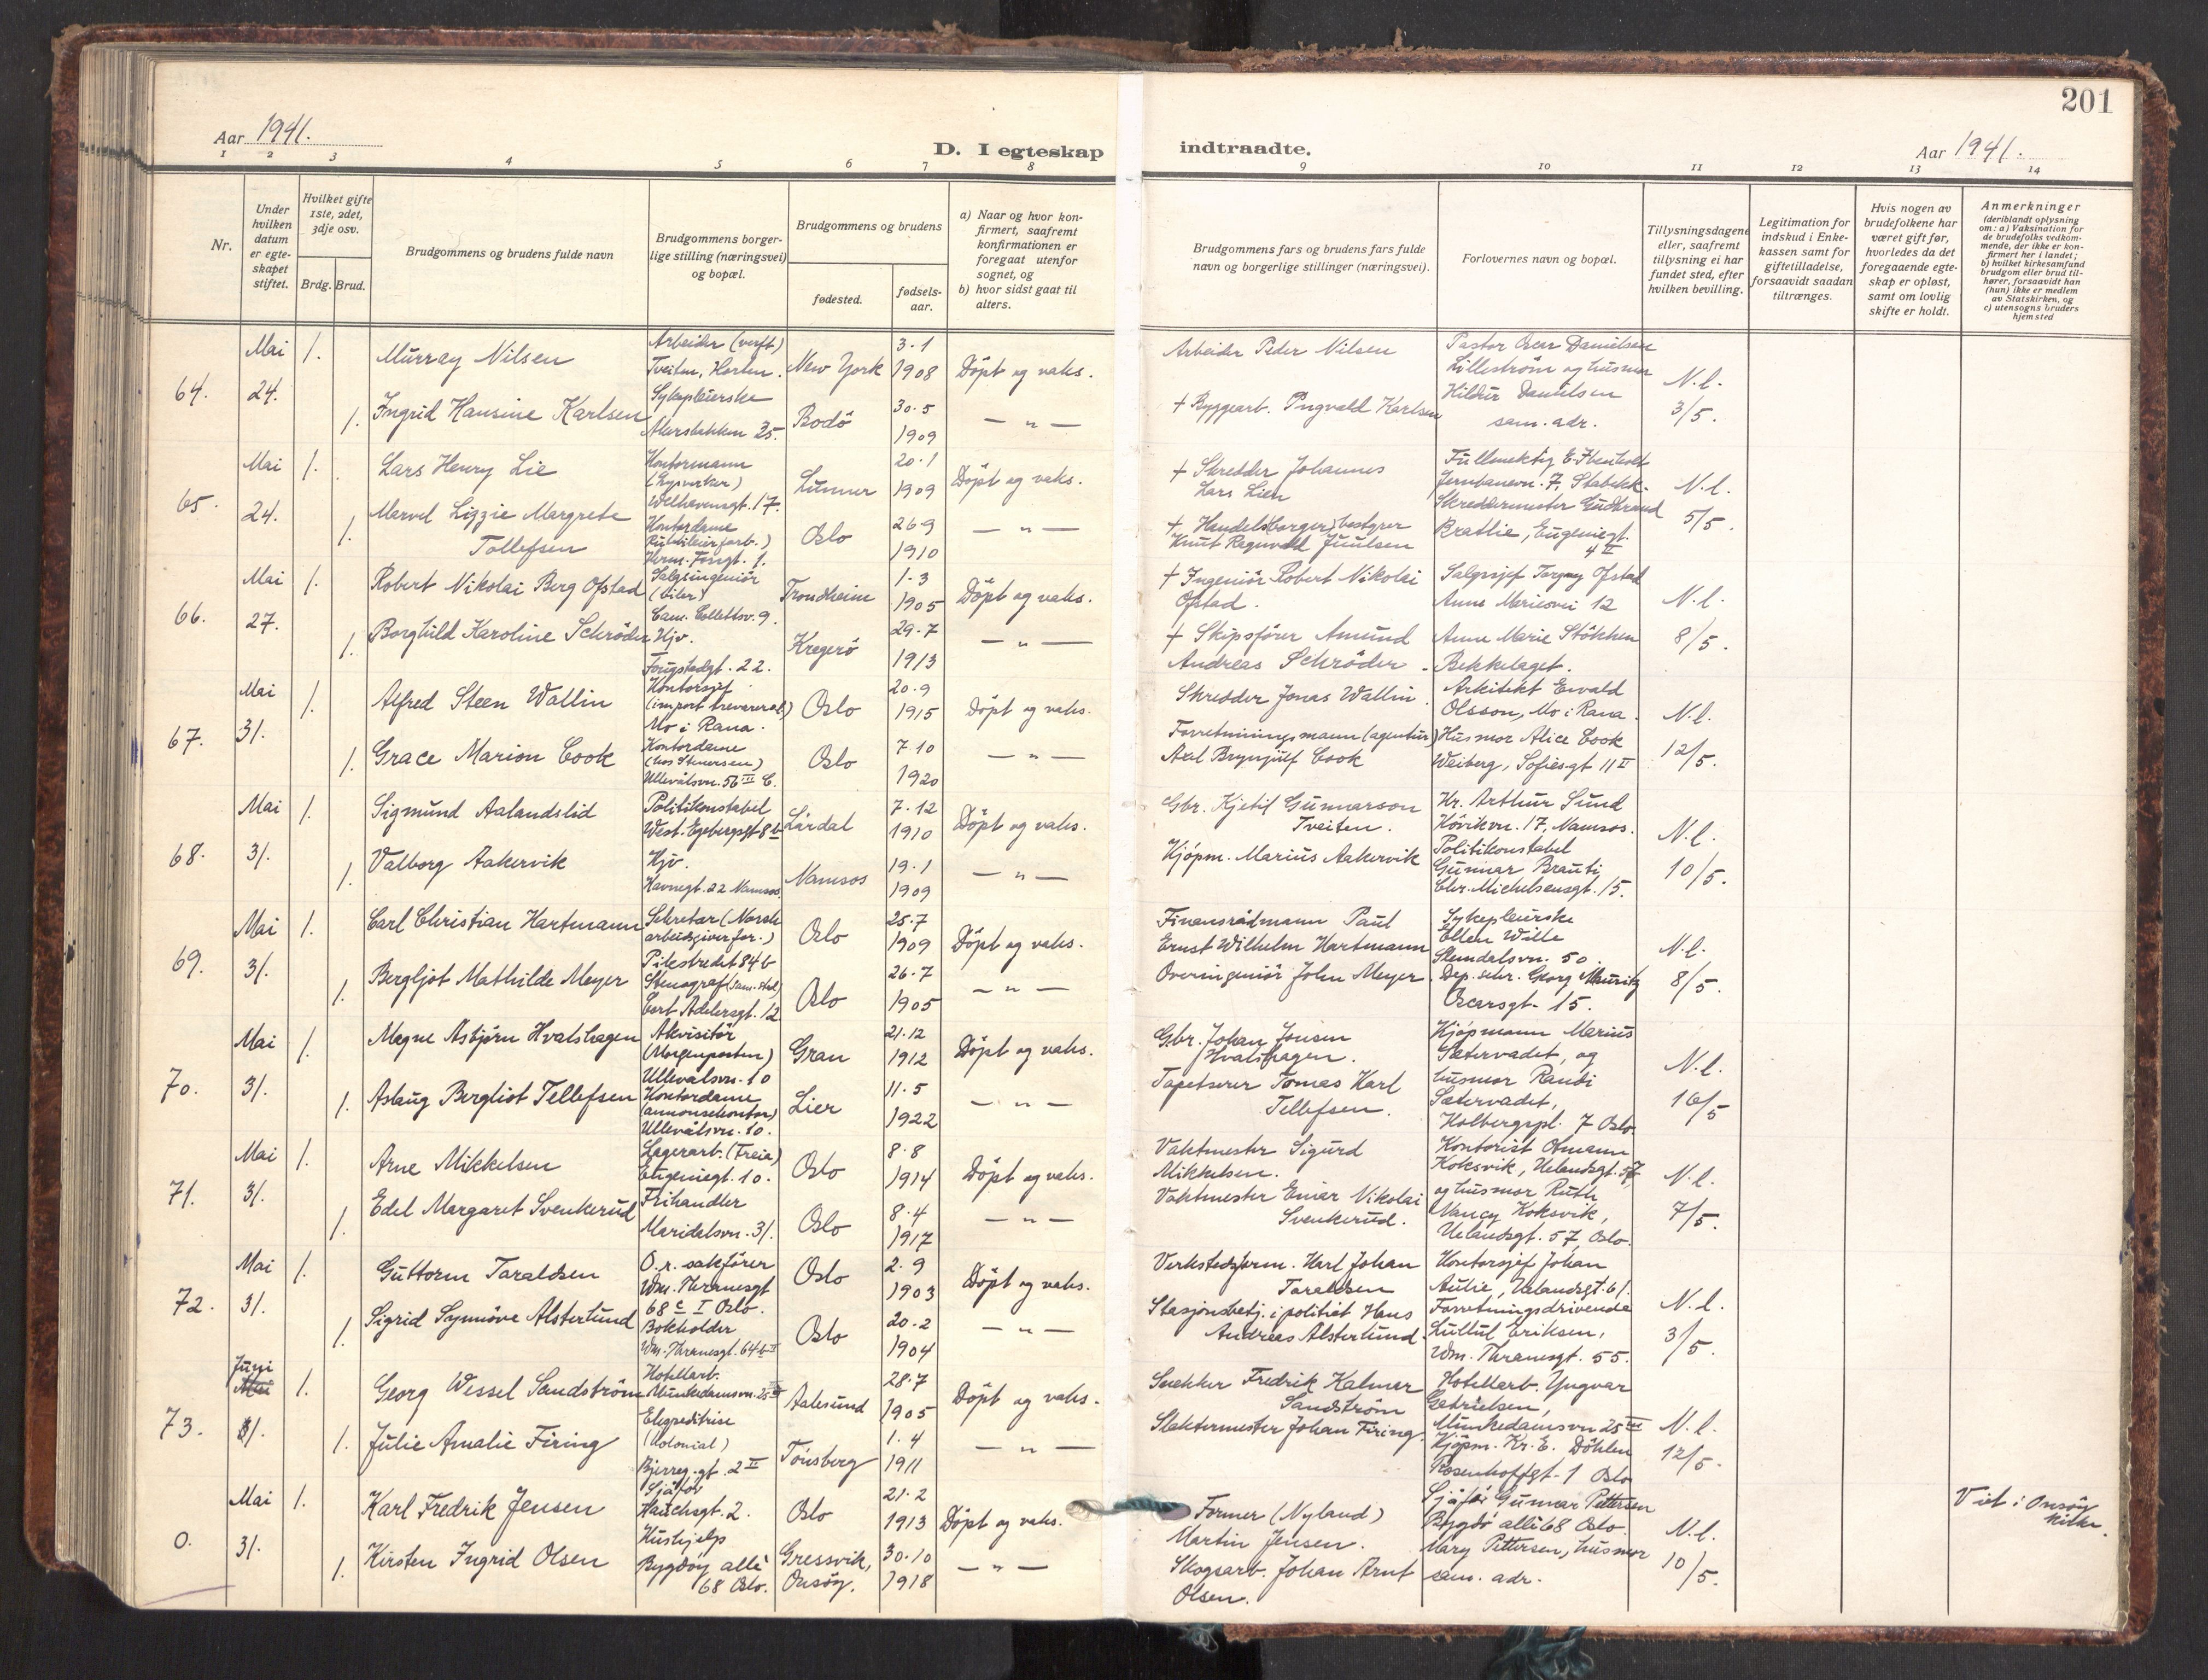 201
Aar 1941.
D. I egteskap indtraadte.
Aar 1941.
1 2 3 4 5 6 7 8 9 10 11 12 13 14
Nr.
Under hvilken datum er egte-skapet stiftet.
Hvilket gifte 1ste, 2det, 3dje osv.
Brdg. Brud.
Brudgommens og brudens fulde navn
Brudgommens borger-lige stilling (næringsvei) og bopæl.
Brudgommens og brudens
fødested.
fødsels-aar.
a) Naar og hvor kon-firmert, saafremt konfirmationen er foregaat utenfor sognet, og
b) hvor sidst gaat til alters.
Brudgommens fars og brudens fars fulde navn og borgerlige stillinger (næringsvei).
Forlovernes navn og bopæl.
Tillysningsdagene eller, saafremt tillysning ei har fundet sted, efter hvilken bevilling.
Legitimation for indskud i Enke-kassen samt for giftetilladelse, forsaavidt saadan tiltrænges.
Hvis nogen av brudefolkene har været gift før, hvorledes da det foregaaende egte-skap er opløst, samt om lovlig skifte er holdt.
Anmerkninger
(deriblandt oplysning om: a) Vaksination for de brudefolks vedkom-mende, der ikke er kon-firmert her i landet; b) hvilket kirkesamfund brudgom eller brud til-hører, forsaavidt han (hun) ikke er medlem av Statskirken, og c) utensogns bruders hjemsted
64. Mai 24. 1. Murray Nilsen
Arbeider (verft)
Tveiten, Horten.
New York 3.1 1908 Döpt og vaks.
Arbeider Peder Nilsen
Pastor Oscar Danielsen
Lilleström og husmor
Hildur Danielsen
sam. adr.
N.l. 3/5.
1. Ingrid Hansine Karlsen
Sykepleierske
Akersbakken 35.
Bodö 30.5 1909 — „ —
+ Byggearb. Ingvald Karlsen
65. Mai 24. 1. Lars Henry Lie
Kontormann
Welhavensgt. 17.
Lunner 20.1 1909 Döpt og vaks.
+ Skredder Johannes
Lars Lien
Fullmektig E. Ibenholt
Jernbanevn. 7, Stabekk.
Skreddermester Gudbrand
Brattlie, Eugeniegt.
4 II
N.l. 5/5.
1. Marvel Lizzie Margrete
Tollefsen
Kontordame
Herm. Fossgt. 1.
Oslo 26.9 1910 — „ —
+ Handels(borger) bestyrer
Knut Ragnvald Juulsen
66. Mai 27. 1. Robert Nikolai Berg Ofstad
Salgsingeniör
(biler)
Cam. Collettsv. 9.
Trondheim 1.3 1905 Döpt og vaks.
+ Ingeniör Robert Nikolai
Ofstad.
Salgssjef Torgny Ofstad
Anna Mariesvei 12
Anne Marie Stökken
Bekkelaget.
N.l. 8/5.
1. Borghild Karoline Schröder
Hjv.
Fougstadgt. 22.
Kragerö 29.7 1913 — „ —
+ Skipsförer Amund
Andreas Schröder.
67. Mai 31. 1. Alfred Steen Wallin
Kontorsjef
(import trevarer o.l.)
Mo i Rana.
Oslo 20.9 1915 Döpt og vaks.
Skredder Jonas Wallin.
Arkitekt Ewald
Olsson, Mo i Rana.
Husmor Alice Cook
Weiberg, Sofiesgt 11 II
N.l. 12/5.
1. Grace Marion Cook
Kontordame
Ullevålsvn. 56 III C.
Oslo 7.10 1920 — „ —
Forretningsmann (agentur)
Axel Brynjulf Cook
68. Mai 31. 1. Sigmund Aalandslid
Politikonstabel
West. Egebergsgt 8 b
Lårdal 7.12 1910 Döpt og vaks.
Gbr. Kjetil Gunnarson
Tveiten.
Hr. Arthur Sund
Hövikvn. 17, Namsos.
Politikonstabel
Gunnar Brauti
Chr. Michelsensgt. 15.
N.l. 10/5.
1. Valborg Aakervik
Hjv.
Havnegt. 22 Namsos.
Namsos 19.1 1909 — „ —
Kjöpm. Marius Aakervik
69. Mai 31. 1. Carl Christian Hartmann
Sekretær (Norsk
arbeidsgiverfor.)
Pilestredet 84 b
Oslo 25.7 1909 Döpt og vaks.
Finansrådmann Paul
Ernst Wilhelm Hartmann
Sykepleierske
Ellen Wille
Slemdalsvn. 50.
Dep. sekr. Georg Mauritz
Oscarsgt. 15.
N.l. 8/5.
1. Bergljot Mathilde Meyer
Stenograf (sam. sted)
Cort Adelersgt. 12
Oslo 26.7 1905 — „ —
Overingeniör John Meyer.
70. Mai 31. 1. Magne Asbjørn Hvalshagen
Akvisitör
(Morgenposten)
Ullevålsvn. 10
Gran 21.12 1912 Döpt og vaks.
Gbr. Johan Jensen
Hvalshagen.
Kjöpmann Marius
Sætervadet, og
husmor Randi
Sætervadet,
Holbergspl. 7 Oslo.
N.l. 16/5
1. Aslaug Bergliot Tellefsen
Kontordame
(annonsekontor)
Ullevålsvn. 10.
Lier 11.5 1922 — „ —
Tapetserer Tomas Karl
Tellefsen.
71. Mai 31. 1. Arne Mikkelsen
Lagerarb. (Freia)
Eugeniegt. 10.
Oslo 8.8 1914 Döpt og vaks.
Vaktmester Sigurd
Mikkelsen.
Kontorist Otmann
Koksvik, Uelandsgt. 57
og husmor Ruth
Nancy Koksvik,
Uelandsgt. 57, Oslo.
N.l. 7/5.
1. Edel Margaret Svenkerud
Frihandler
Maridalsvn. 31.
Oslo 8.4 1917 — „ —
Vaktmester Einar Nikolai
Svenkerud.
72. Mai 31. 1. Guttorm Taraldsen
O.r. sakförer
Wm. Thranesgt
68 c I Oslo.
Oslo 2.9 1903 Döpt og vaks.
Verkstedsform. Karl Johan
Taraldsen
Kontorsjef Johan
Aulie, Uelandsgt. 61.
Forretningsdrivende
Lullul Eriksen,
Wm. Thranesgt. 55.
N.l. 3/5.
1. Sigrid Synnöve Alsterlund
Bokholder
Wm. Thranesgt. 64 b II
Oslo 20.2 1904 — „ —
Stasjonsbetj. i politiet Hans
Andreas Alsterlund.
73. Juni Mai 1. 1. Georg Wessel Sandström
Hotellarb.
Munkedamsvn. 25 III
Aalesund 28.7 1905 Döpt og vaks.
Snekker Fredrik Kalmar
Sandström
Hotellarb. Yngvar
Gabrielsen,
Munkedamsvn 25 III
Kjöpm. Kr. E. Döhlen
Rosenhoffgt. 1 Oslo
N.l. 12/5.
1. Julie Amalie Firing
Ekspeditrise
(kolonial)
Bjerreg.gt. 2 II
Tönsberg 1.4 1911 — „ —
Slaktermester Johan Firing.
0. Mai 31. 1. Karl Fredrik Jensen
Sjåför
Hauchsgt. 2.
Oslo 21.2 1913 Döpt og vaks.
Former (Nyland)
Martin Jensen.
Sjåför Gunnar Pettersen
Bygdö allé 68 Oslo.
Mary Pettersen, husmor
sam. adr.
N.l. 10/5.
Viet i Onsöy
kirke.
1. Kirsten Ingrid Olsen
Hushjelp
Bygdöy allé
68 Oslo.
Gressvik,
Onsöy.
30.10 1918 — „ —
Skogsarb. Johan Arnt
Olsen.